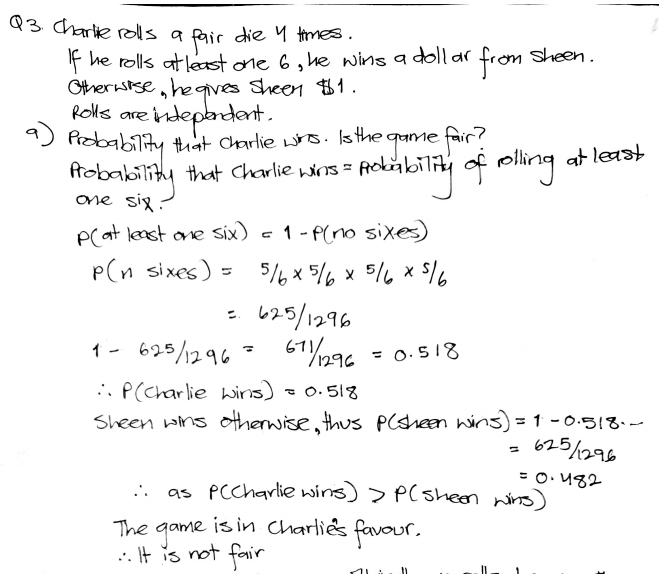 Q3. Charlie rolls a fair die 4 times.
If he rolls at least one 6, he wins a dollar from Sheen.
Otherwise, he gives Sheen $1.
Rolls are independent.
a) Probability that Charlie wins. Is the game fair?
Probability that Charlie wins = Probability of rolling at least
one six.
P(at least one six) = 1 - P(no sixes)
P(n sixes) = 5/6 x 5/6 x 5/6 x 5/6
= 625/1296
1 - 625/1296 = 671/1296 = 0.518
∴ P(Charlie wins) = 0.518
Sheen wins otherwise, thus P(Sheen wins) = 1 - 0.518...
= 625/1296
= 0.482
∴ as P(Charlie wins) > P(Sheen wins)
The game is in Charlie's favour.
∴ It is not fair